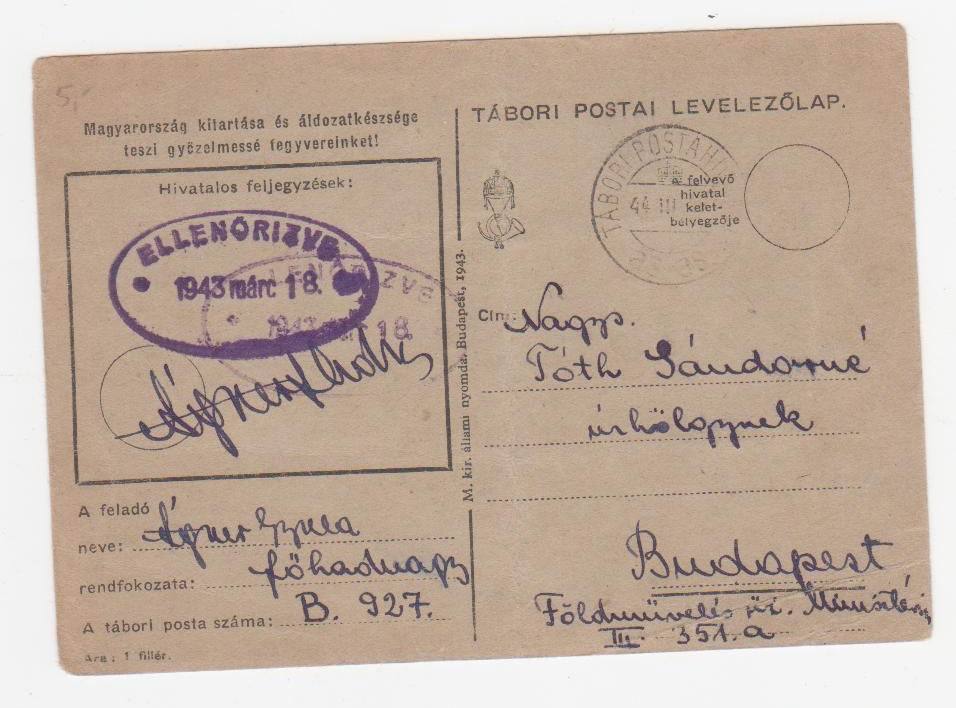 5,-
Magyarország kitartása és áldozatkészsége
teszi győzelmessé fegyvereinket!
Hivatalos feljegyzések:
ELLENŐRIZVE
1943 márc 18.
ELLENŐRIZVE
1943 18.
A feladó
neve: Ágner Gyula
rendfokozata: főhadnagy
A tábori posta száma: B. 927.
Ára: 1 fillér.
M. kir. állami nyomda, Budapest, 1943.
TÁBORI POSTAI LEVELEZŐLAP.
TÁBORI POSTAHIV
44 III
A felvevő
hivatal
kelet-
bélyegzője
Cím: Nagys.
Tóth Sándorné
úrhölgynek
Budapest
Földművelésüi. Minisztérium
III. 351.a